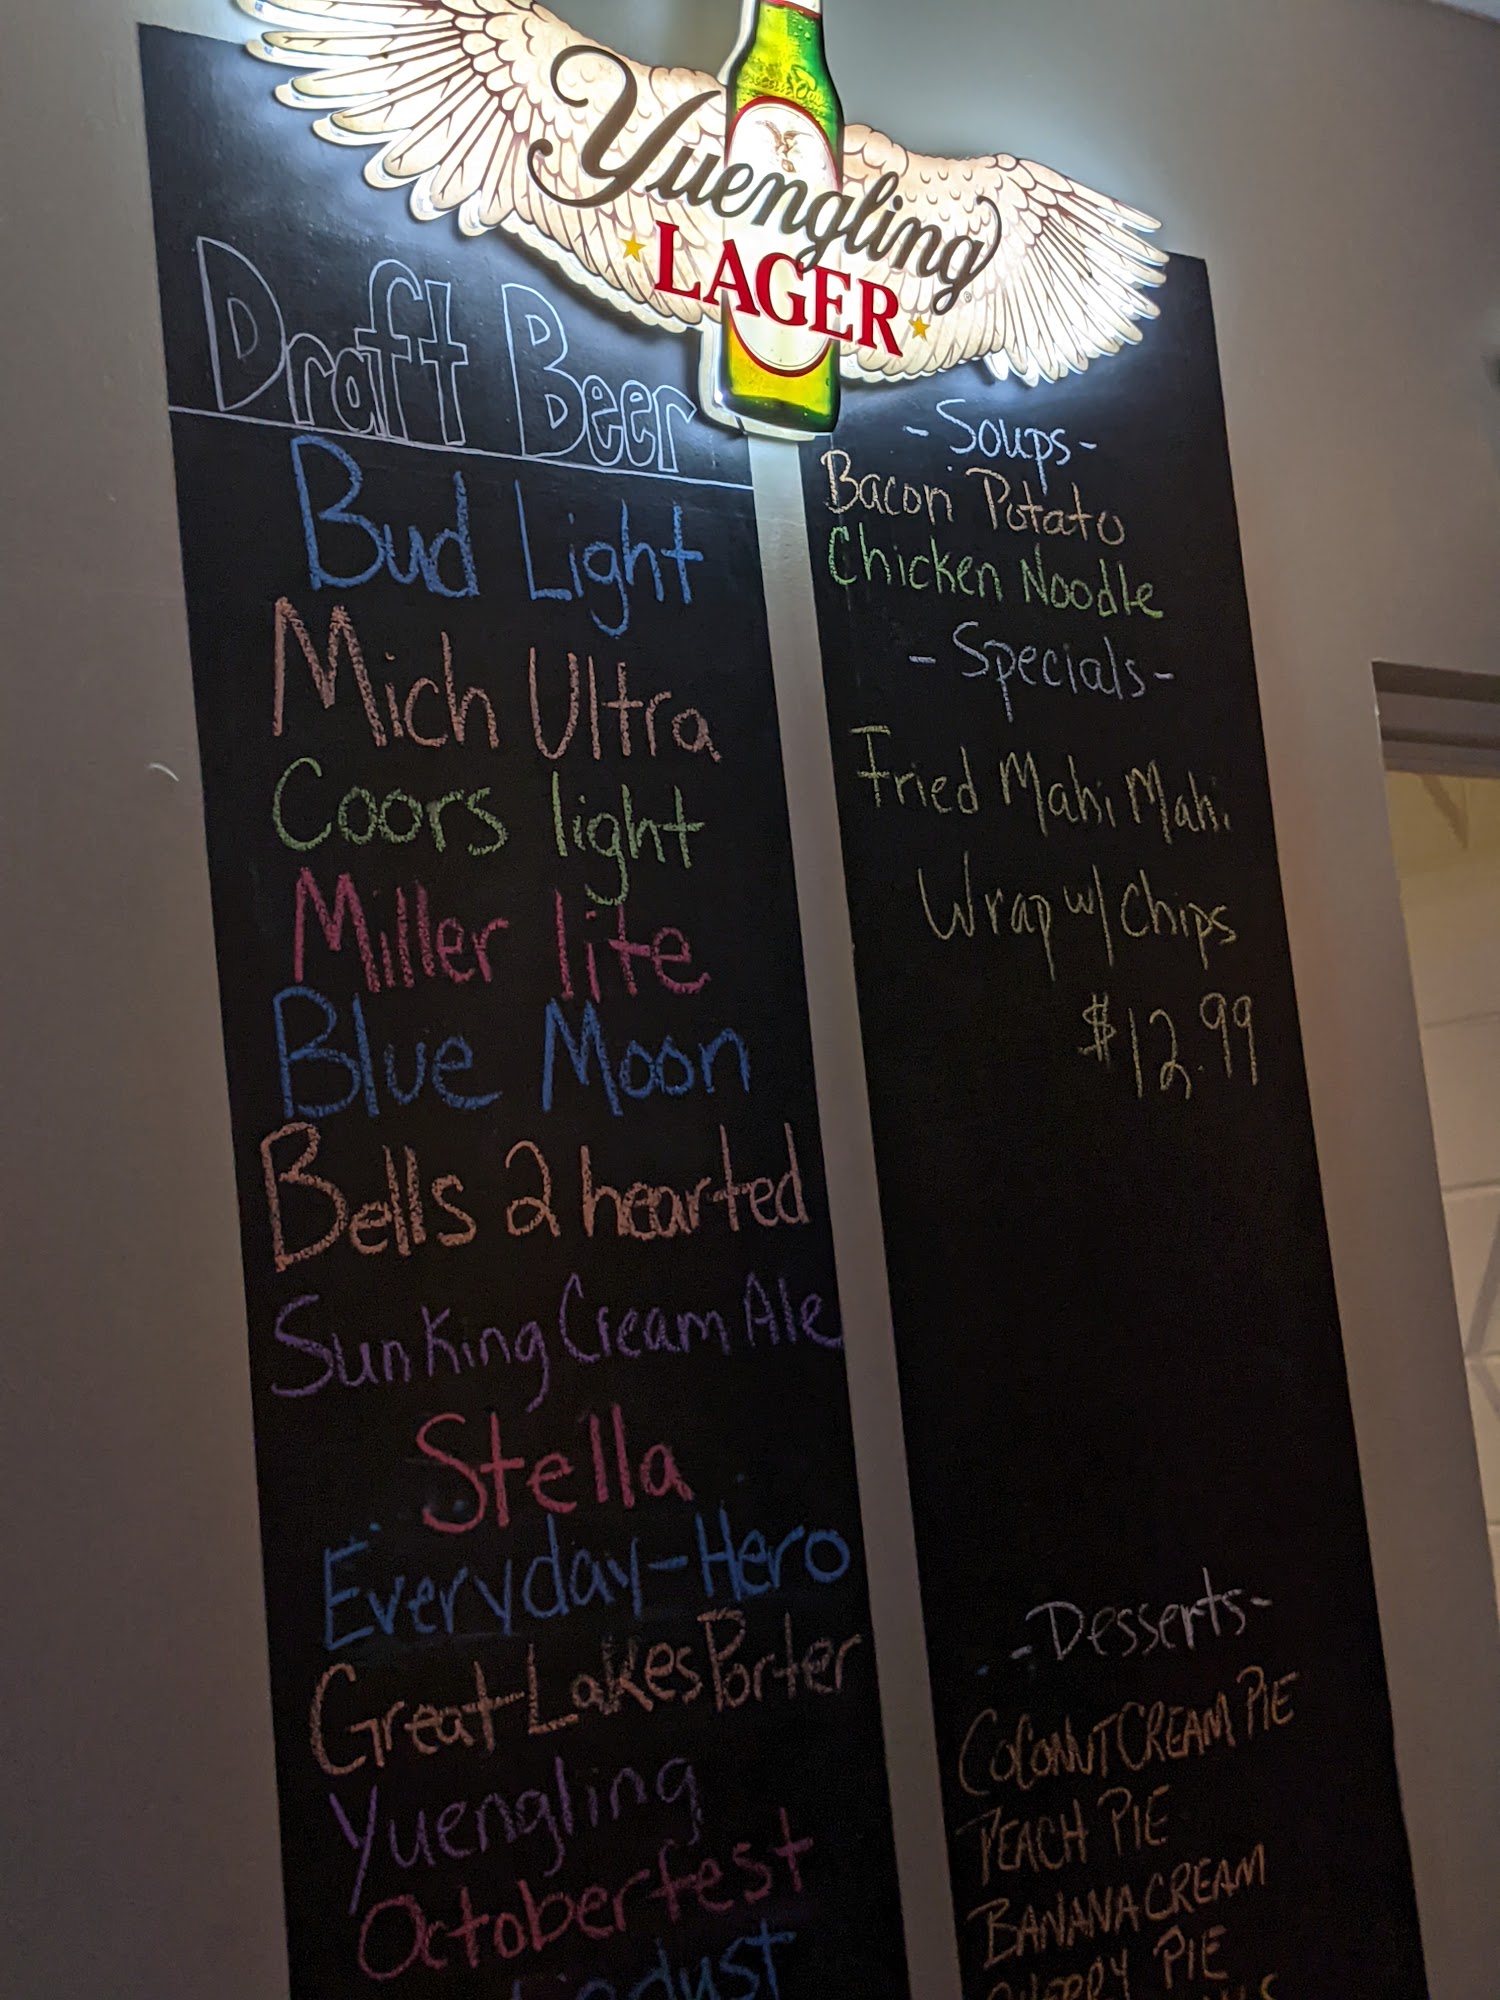 Yuengling
LAGER
Draft Beer
Bud Light
Mich Ultra
Coors light
Miller lite
Blue Moon
Bells 2 hearted
Sun King Cream Ale
Stella
Everyday-Hero
Great Lakes Porter
Yuengling
Octoberfest
-Soups-
Bacon Potato
Chicken Noodle
-Specials-
Fried Mahi Mahi
Wrap w/ Chips
$12.99
-Desserts-
COCONUT CREAM PIE
PEACH PIE
BANANA CREAM
CHERRY PIE